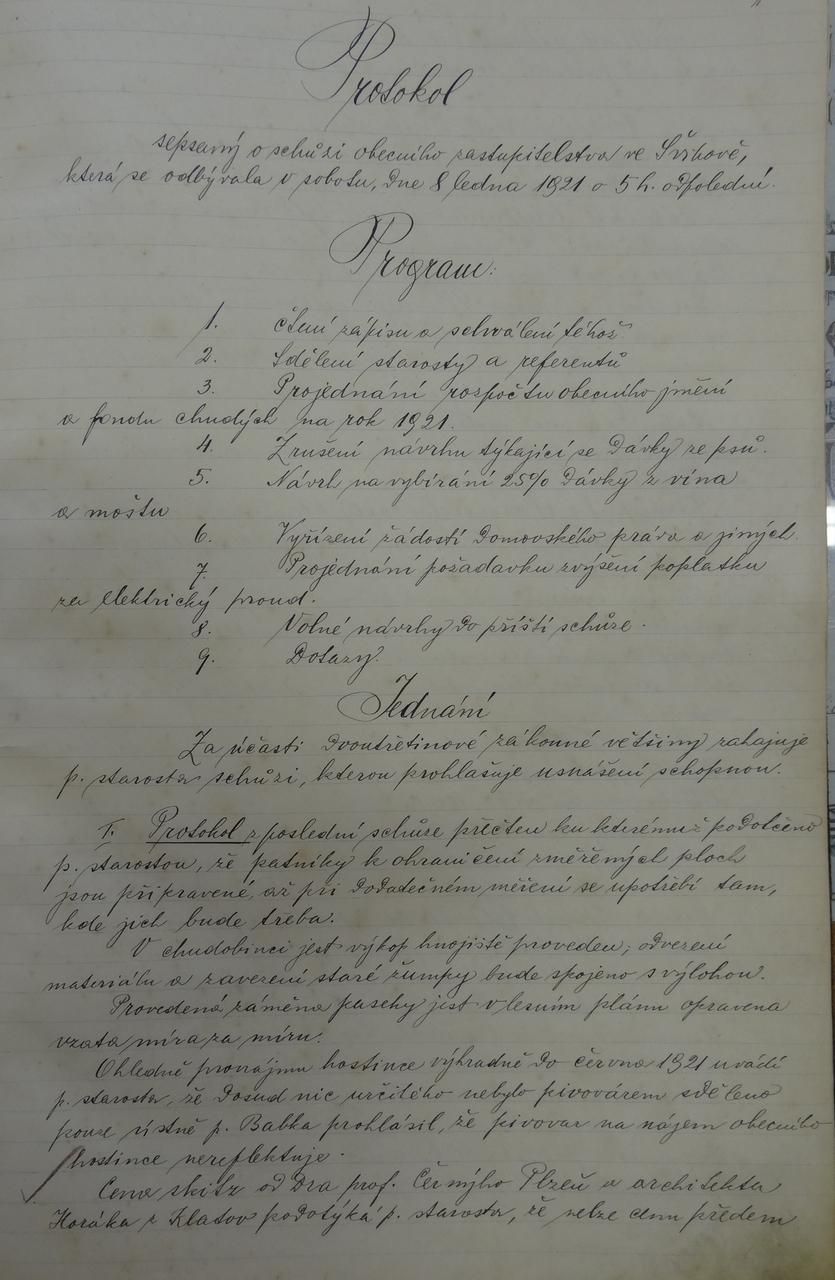 Protokol
sepsaný o schůzi obecního zastupitelstva ve Švihově,
která se odbývala v sobotu, dne 8 ledna 1921 o 5 h. odpolední.
Program:
1. čtení zápisu a schválení téhož
2. Sdělení starosty a referentů
3. Projednání rozpočtu obecního jmění
a fondu chudých na rok 1921.
4. Zrušení návrhu týkající se dávky ze psů.
5. Návrh na vybírání 25% dávky z vína
a moštu
6. Vyřízení žádostí domovského práva a jiných.
7. Projednání požadavku zvýšení poplatku
za elektrický proud.
8. Volné návrhy do příští schůze.
9. Dotazy.
Jednání
Za účasti dvoutřetinové zákonné většiny zahajuje
p. starosta schůzi, kterou prohlašuje usnášení schopnou.
I. Protokol z poslední schůze přečten ku kterémuž podotčeno
p. starostou, že patníky k ohraničení změřených ploch
jsou připravené, až při dodatečném měření se upotřebí tam,
kde jich bude třeba.
V chudobinci jest výkop hnojiště proveden; odvezení
materiálu a zavezení staré žumpy bude spojeno s výlohou.
Provedená záměna paseky jest v lesním plánu opravena
vzata míra za míru.
Ohledně pronájmu hostince výhradně do června 1921 uvádí
p. starosta, že dosud nic určitého nebylo pivovárem sděleno
pouze ústně p. Babka prohlásil, že pivovar na nájem obecního
hostince nereflektuje.
Cena skitz od Dra prof. Černýho Plzeň a architekta
Horáka z Klatov podotýká p. starosta, že nelze cenu předem